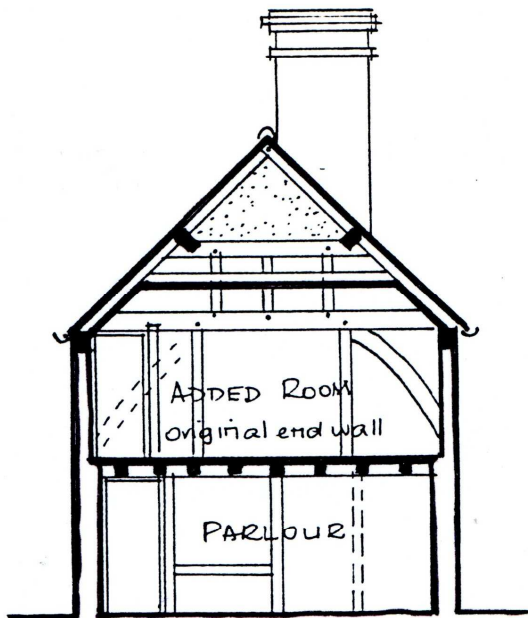 ADDED ROOM
original end wall
PARLOUR